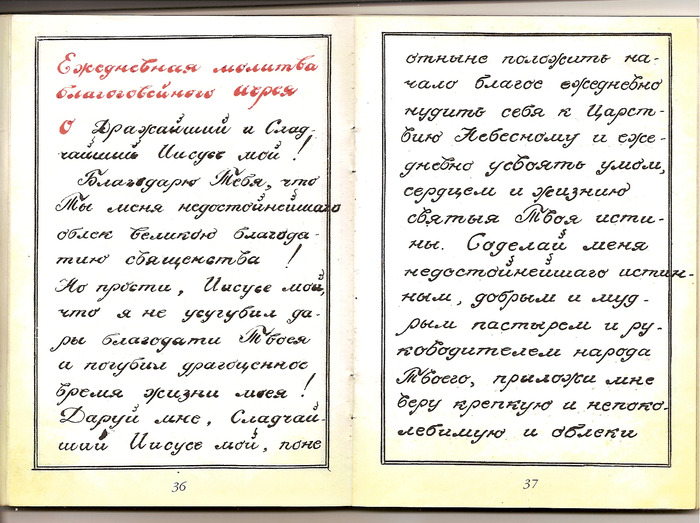 Ежедневная молитва
благоговейного иерея
О Дражайший и Слад-
чайший Иисусе мой!
Благодарю Тебя, что
Ты меня недостойнейшаго
облек великою благода-
тию священства!
Но прости, Иисусе мой,
что я не усугубил да-
ры благодати Твоея
и погубил драгоценное
время жизни моея!
Даруй мне, Сладчай-
ший Иисусе мой, поне
36
отныне положить на-
чало благое ежедневно
нудить себя к Царст-
вию Небесному и еже-
дневно усвоять умом,
сердцем и жизнию
святыя Твоя исти-
ны. Соделай меня
недостойнейшаго истин-
ным, добрым и муд-
рым пастырем и ру-
ководителем народа
Твоего, приложи мне
веру крепкую и непоко-
лебимую и облеки
37